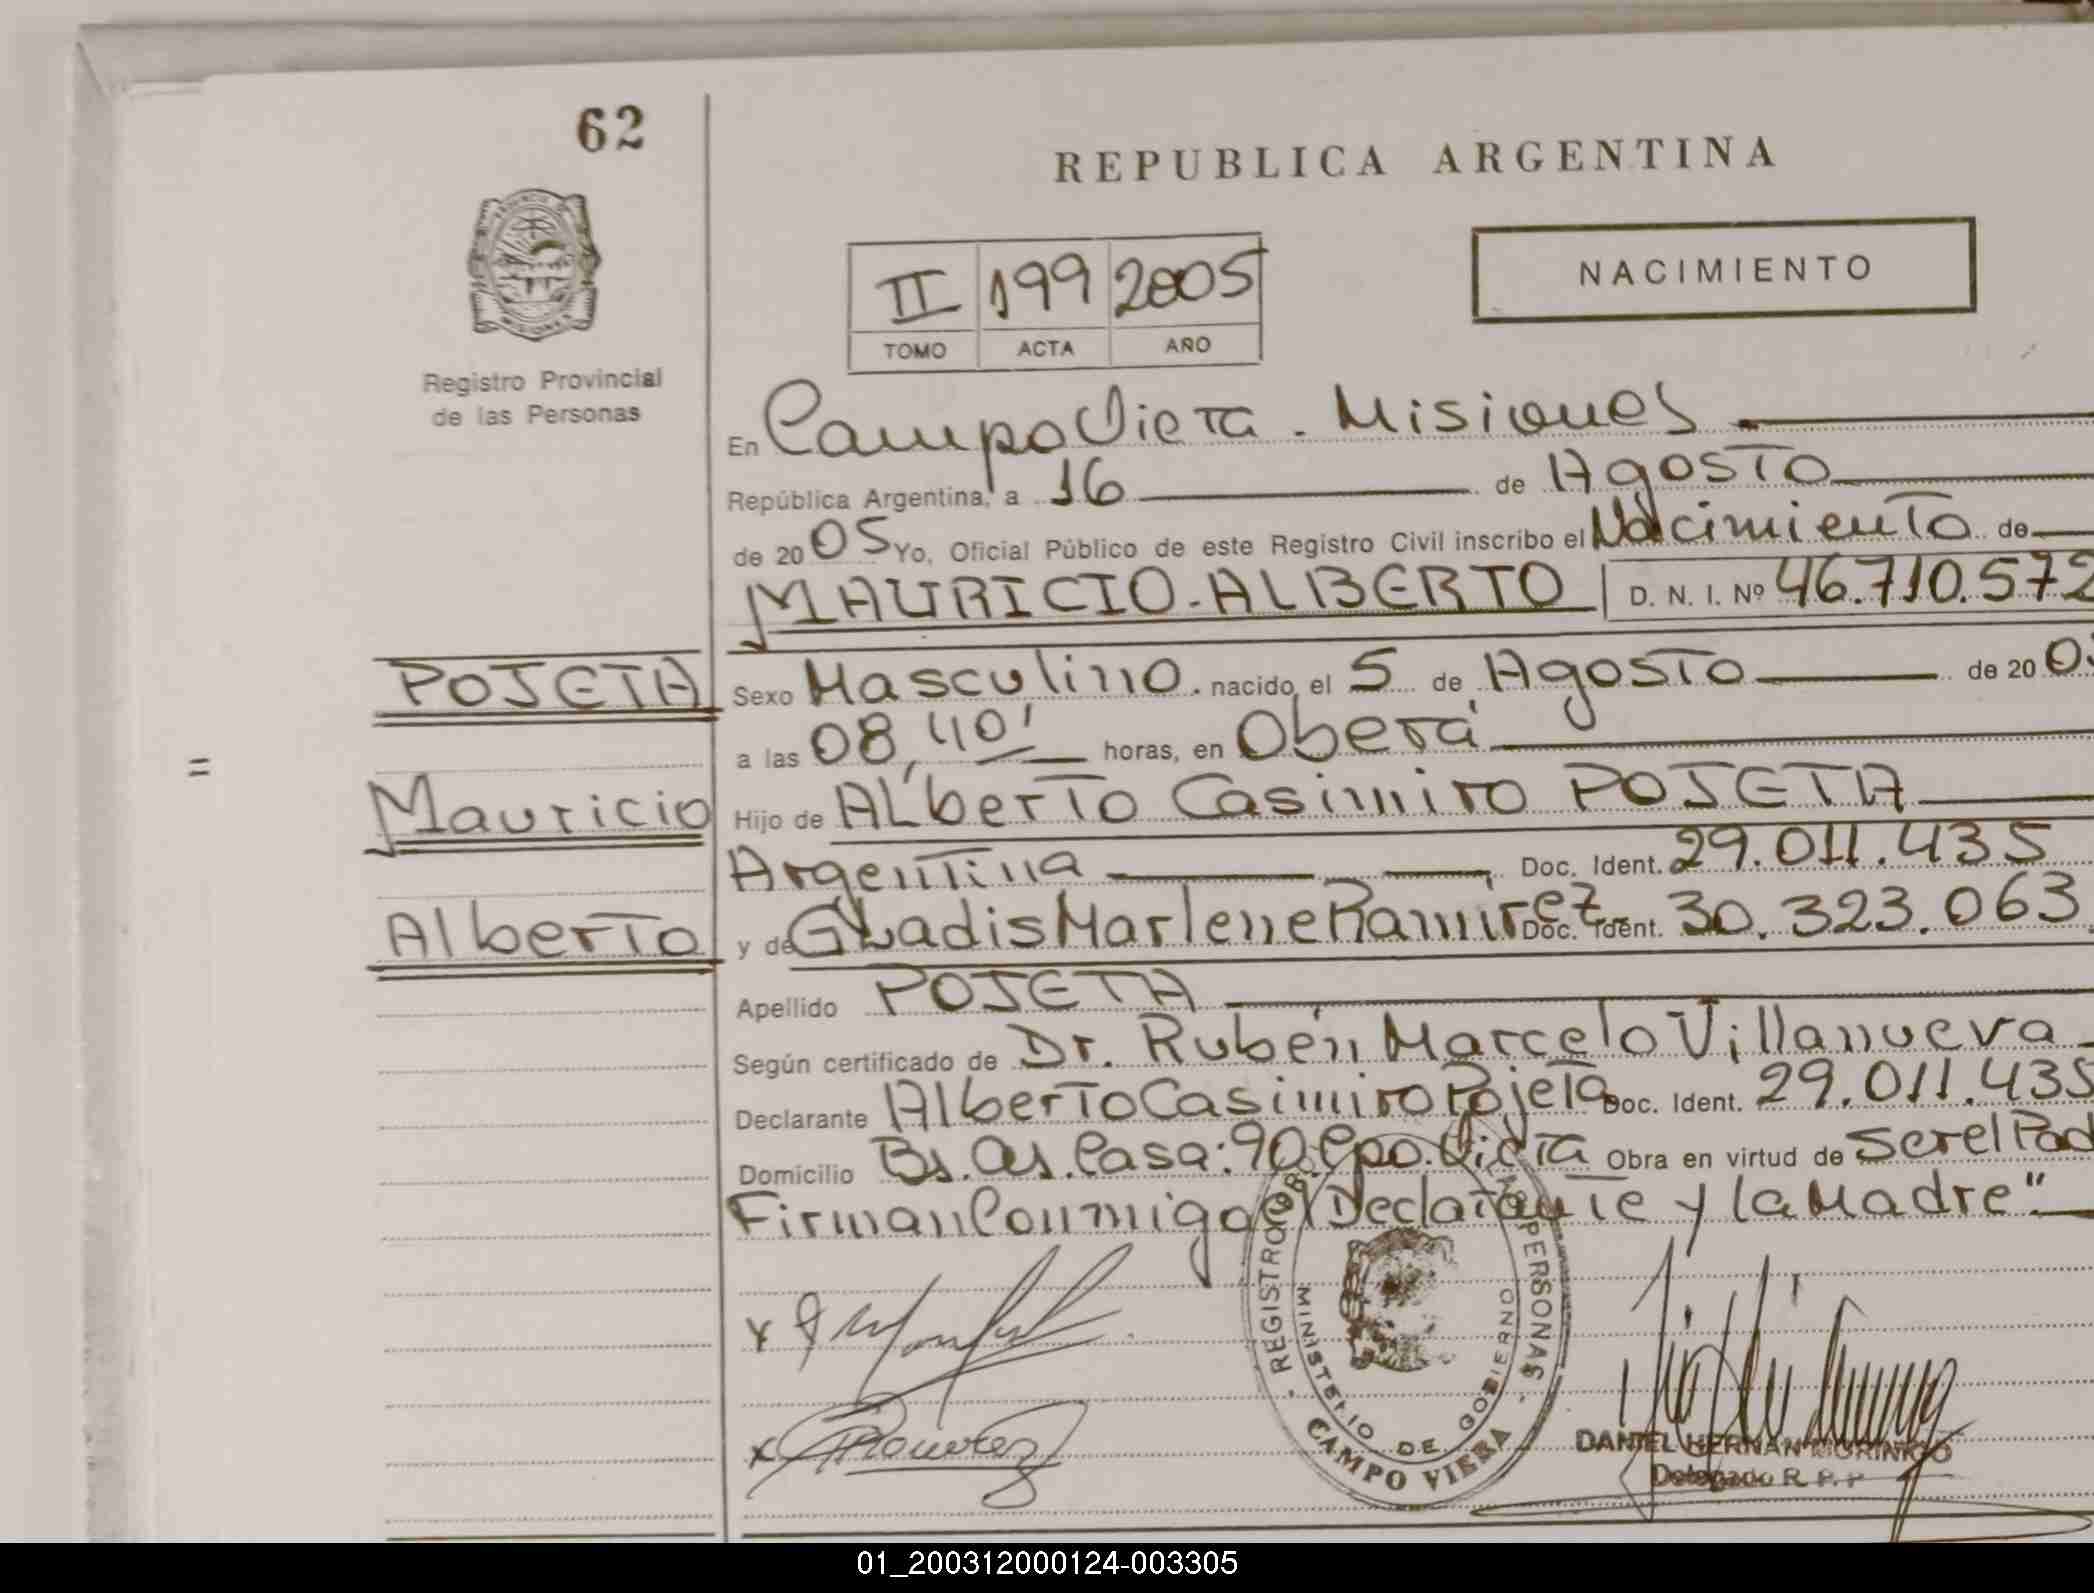 62
REPUBLICA ARGENTINA
NACIMIENTO
II 199 2005
TOMO ACTA AÑO
Registro Provincial
de las Personas
En Campo Viera. Misiones
República Argentina, a 16 de Agosto
de 2005 Yo, Oficial Público de este Registro Civil inscribo el Nacimiento de
MAURICIO-ALBERTO D. N. I. Nº 46.710.572
POJETA
Sexo Masculino. nacido el 5 de Agosto de 20 0
a las 08,40' horas, en Oberá
=
Mauricio
Hijo de ALberto Casimiro POJETA
Argentina Doc. Ident. 29.011.435
Alberto
y de GLadis Marlene Ramirez Doc. Ident. 30.323.063
Apellido POJETA
Según certificado de Dr. Rubén Marcelo Villanueva
Declarante Alberto Casimiro Pojeta Doc. Ident. 29.011.435
Domicilio Bs. As. Casa: 90. Cpo. Viera Obra en virtud de ser el Pad
Firman Conmigo el Declarante y la Madre"
REGISTRO PERSONAS
MINISTERIO DE GOBIERNO
CAMPO VIERA
x
x Ramirez
DANIEL HERNAN MORINIGO
Delegado R. P. P
01_200312000124-003305